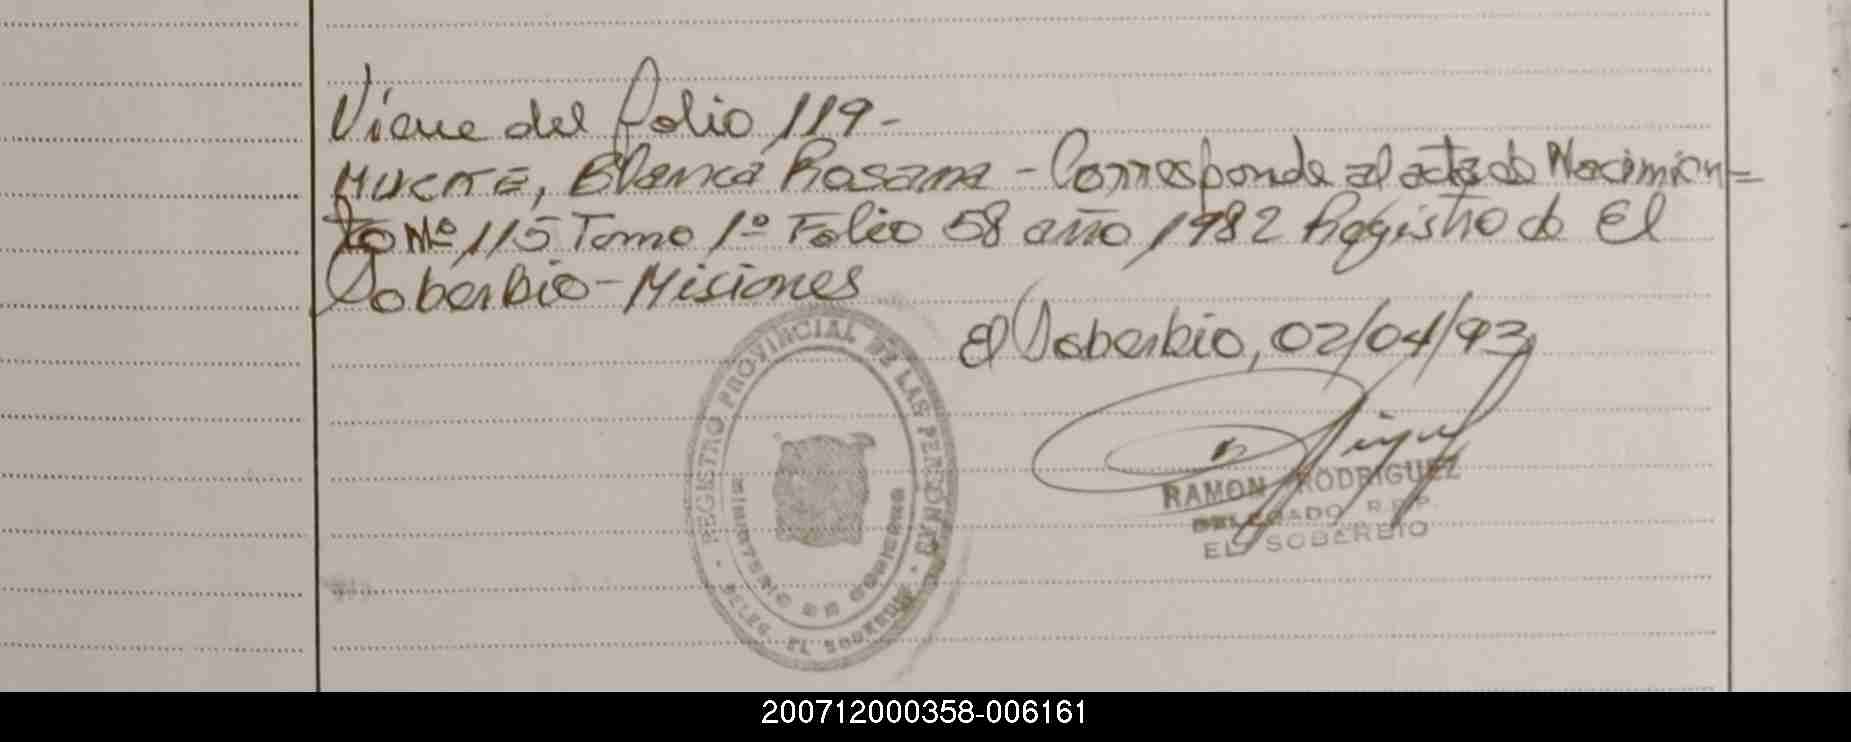 Viene del folio 119-
Blanca Rosana - Corresponde al acta de Nacimien=
to Nº 115 Tomo 1º Folio 58 año 1982 Registro de El
Soberbio-Misiones
El Soberbio, 02/04/93
REGISTRO PROVINCIAL DE LAS PERSONAS
MINISTERIO DE GOBIERNO
DELEG. EL SOBERBIO
RAMON RODRIGUEZ
DELEGADO R.P.P.
EL SOBERBIO
200712000358-006161